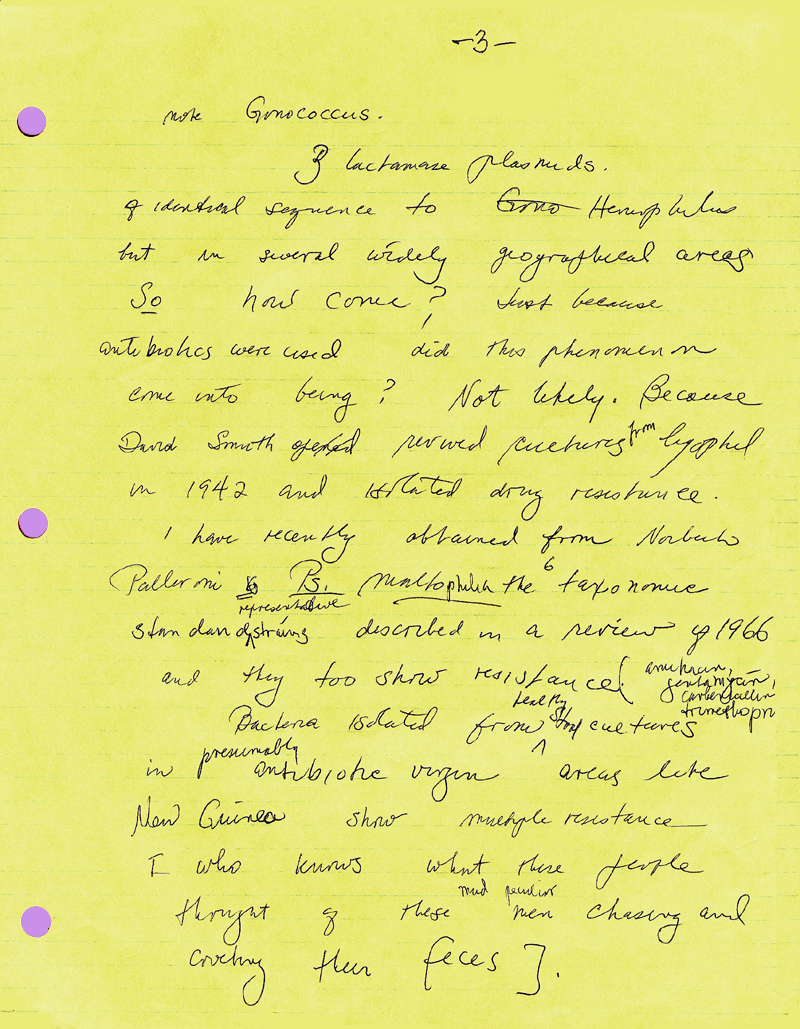 -3-
note Gonococcus.
β lactamase plasmids.
of identical sequence to Gono Hemophilus
but in several widely geographical areas
So how come? Just because
antibiotics were used did this phenomenon
come into being? Not likely. Because
David Smith opened revived cultures from lyophil
in 1942 and isolated drug resistance.
I have recently obtained from Norberto
Palleroni 6 Ps. maltophilia the 6 taxonomic
representative
standard strains described in a review of 1966
and they too show resistance (amikacin,
gentamycin,
carbenicillin
trimethoprim
Bacteria isolated from healthy stool cultures
in presumably antibiotic virgin areas like
New Guinea show multiple resistance
[ who knows what these people
thought of these mad peculiar men chasing and
coveting their feces ].